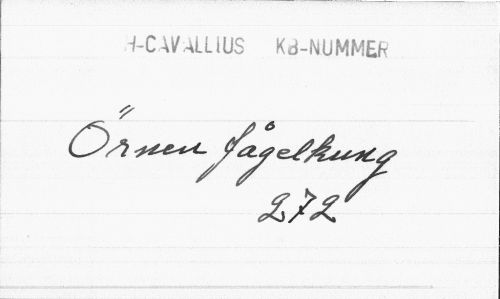 H-CAVALLIUS KB-NUMMER
Örnen fågelkung
272